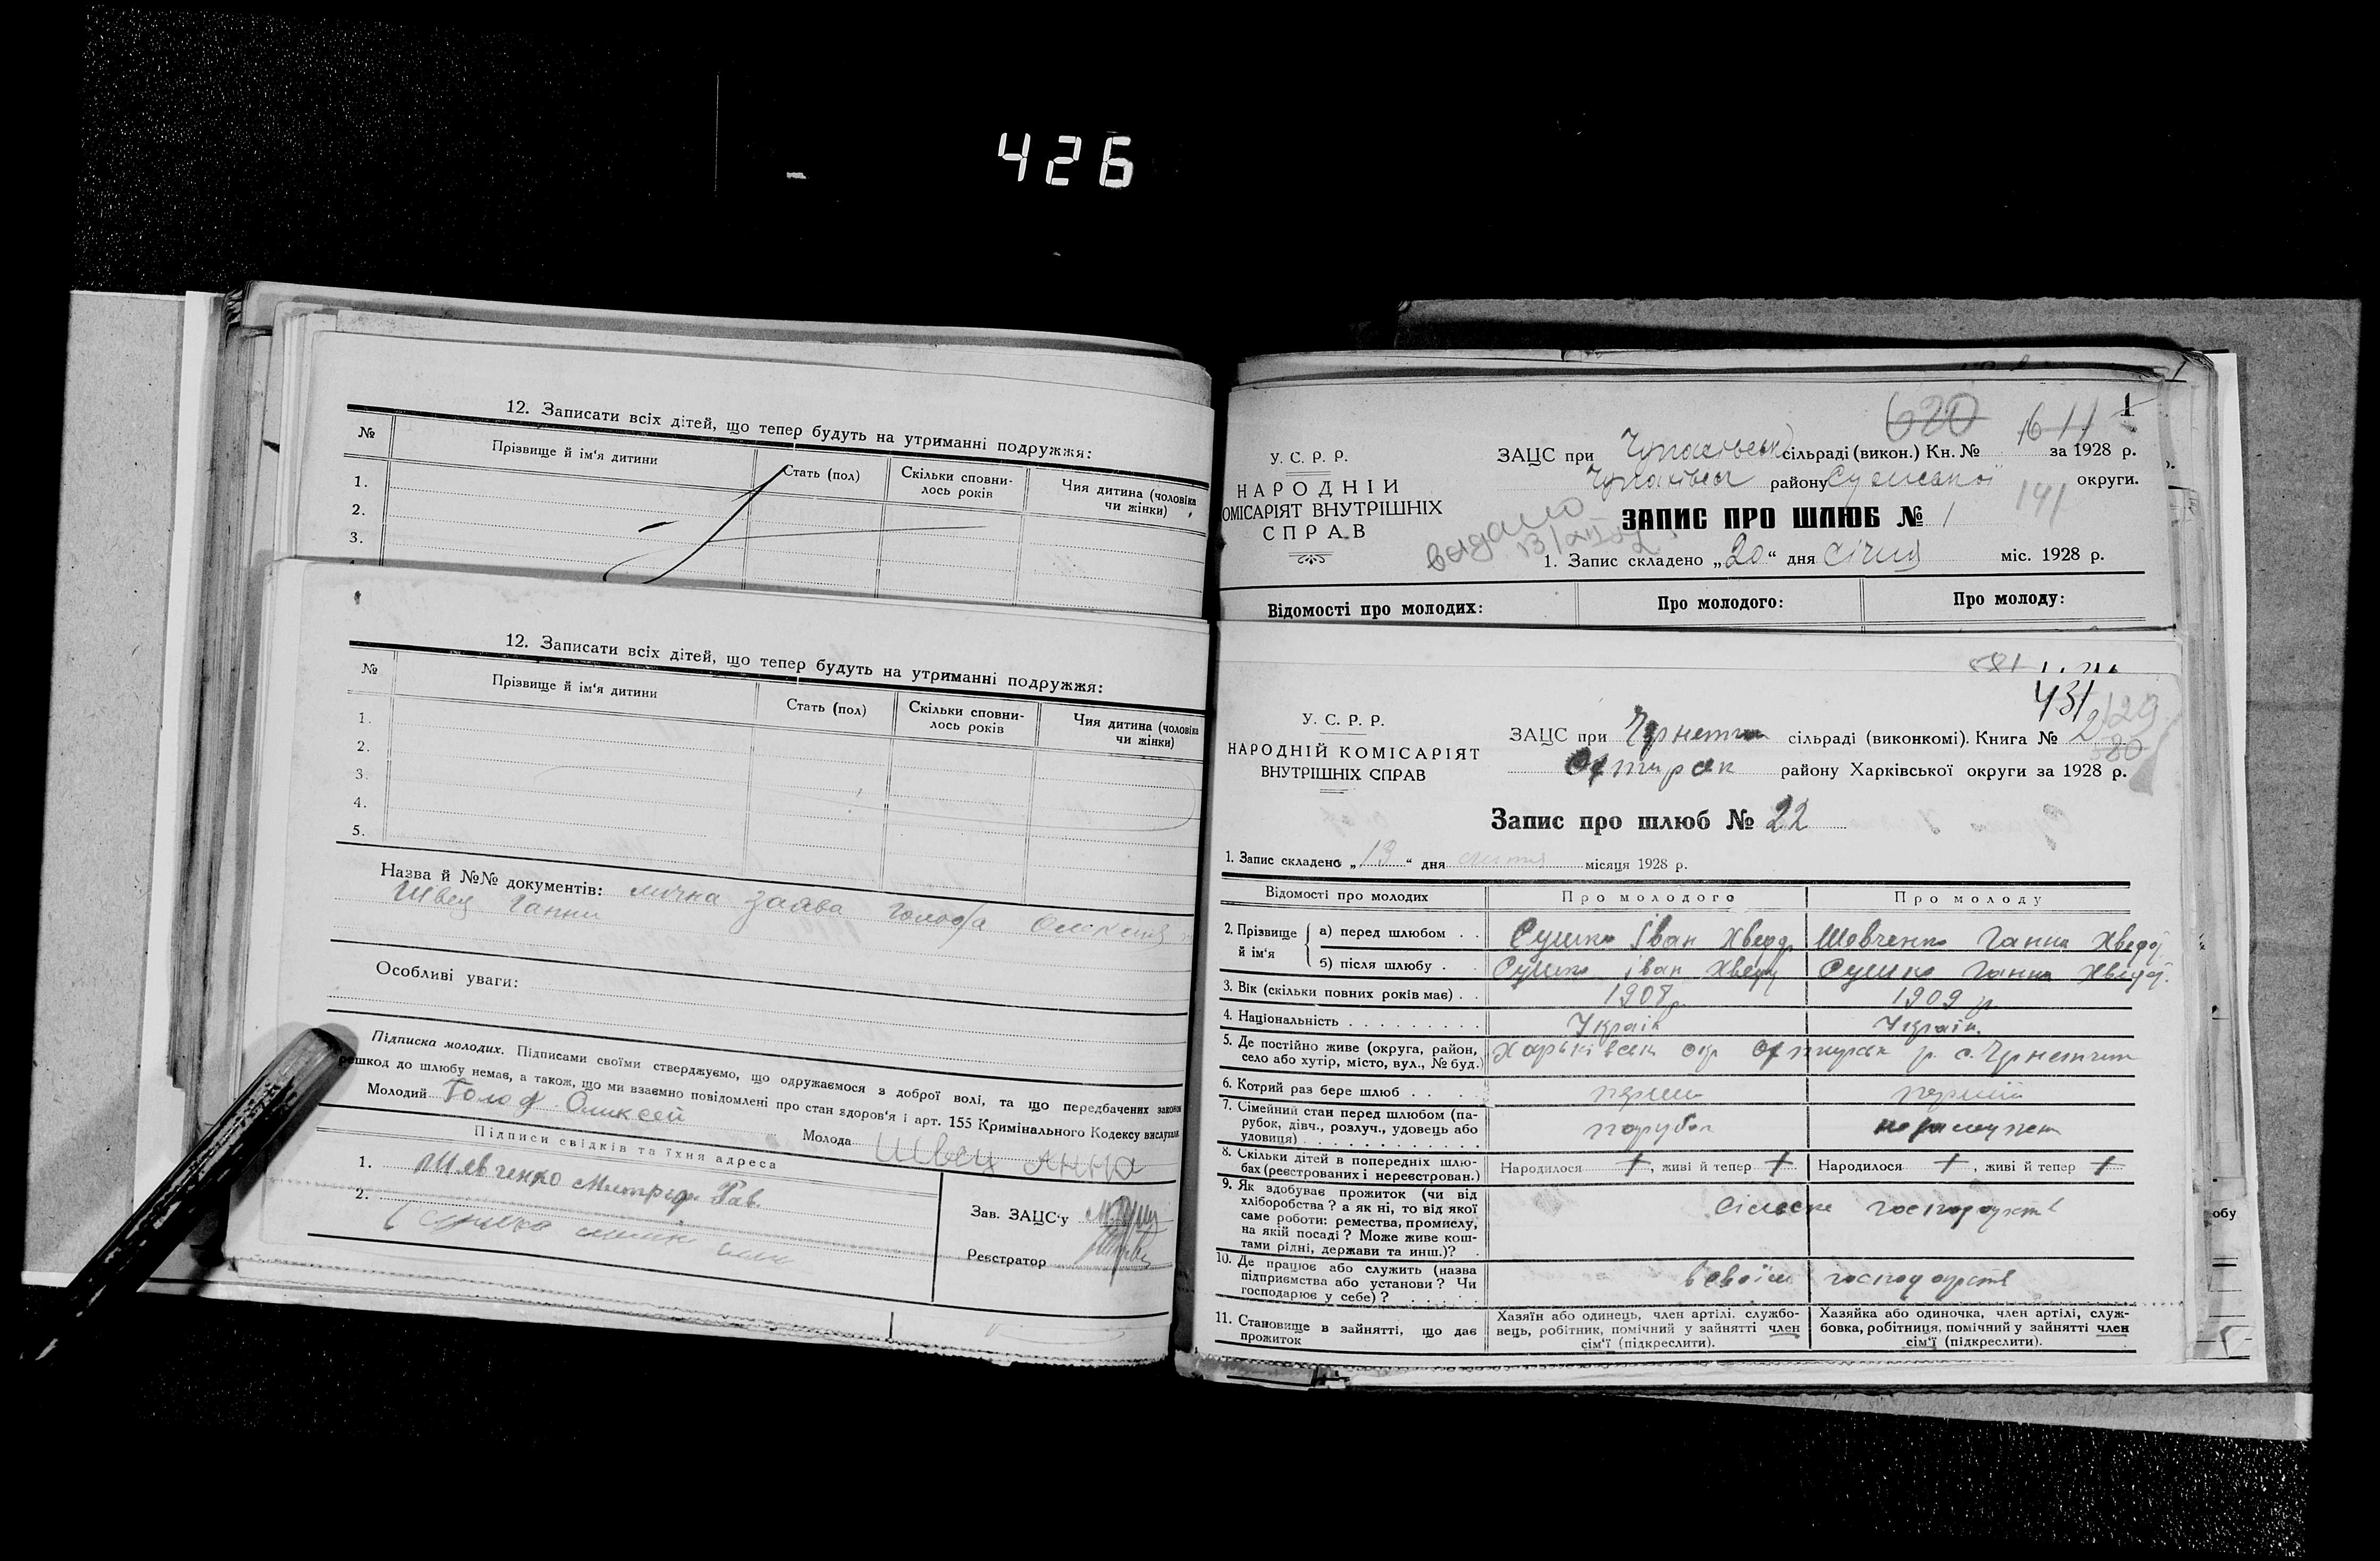 426
12. Записати всіх дітей, що тепер будуть на утриманні подружжя:
№ Прізвище й ім'я дитини Стать (пол) Скільки сповнилось років Чия дитина (чоловіка чи жінки)
1.
2.
3.
12. Записати всіх дітей, що тепер будуть на утриманні подружжя:
№ Прізвище й ім'я дитини Стать (пол) Скільки сповнилось років Чия дитина (чоловіка чи жінки)
1.
2.
3.
4.
5.
Назва й №№ документів: лична заява
Швец Ганни
Особливі уваги:
Підписка молодих. Підписами своїми стверджуємо, що одружаємося з доброї волі, та що передбачених законом
решкод до шлюбу немає, а також, що ми взаємно повідомлені про стан здоров'я і арт. 155 Кримінального Кодексу вислухали
Молодий Голоф Оликсей Молода Швец Анна
Підписи свідків та їхня адреса
1. Шевченко
2.
Зав. ЗАЦС'у
Реєстратор
620 1
У. С. Р. Р.
НАРОДНІЙ
ОМІСАРІЯТ ВНУТРІШНІХ
СПРАВ
ЗАЦС при сільраді (викон.) Кн. № за 1928 р.
району Сумської округи.
141
выдано
ЗАПИС ПРО ШЛЮБ № 1
1. Запис складено „20“ дня січня міс. 1928 р.
Відомості про молодих: Про молодого: Про молоду:
581
431
2/29
У. С. Р. Р.
НАРОДНІЙ КОМІСАРІЯТ
ВНУТРІШНІХ СПРАВ
ЗАЦС при сільраді (виконкомі). Книга № 2
району Харківської округи за 1928 р.
Запис про шлюб № 22
1. Запис складено „13“ дня місяця 1928 р.
Відомості про молодих Про молодого Про молоду
2. Прізвище й ім'я а) перед шлюбом . . Сушко Іван Хведр Шевченко Ганна Хведор
б) після шлюбу . Сушко Іван Хведр Сушко Ганна Хведор
3. Вік (скільки повних років має) . . 1908 р. 1909 р
4. Національність . . . . . . . . . Україн Україн.
5. Де постійно живе (округа, район,
село або хутір, місто, вул., № буд.) Харьківськ окр р. с.
6. Котрий раз бере шлюб . . . .
7. Сімейний стан перед шлюбом (парубок,
дівч., розлуч., удовець або
удовиця) парубок
8. Скільки дітей в попередніх шлюбах
(реєстрованих і нереєстрован.) Народилося +, живі й тепер + Народилося +, живі й тепер +
9. Як здобуває прожиток (чи від
хліборобства? а як ні, то від якої
саме роботи: ремества, промислу,
на якій посаді? Може живе коштами
рідні, держави та инш.)? Сільське господарств
10. Де працює або служить (назва
підприємства або установи? Чи
господарює у себе)? в своїм господарств
11. Становище в зайнятті, що дає
прожиток
Хазяїн або одинець, член артілі, службовець,
робітник, помічний у зайнятті член
сім'ї (підкреслити).
Хазяйка або одиночка, член артілі, службовка,
робітниця, помічний у зайнятті член
сім'ї (підкреслити).
обу